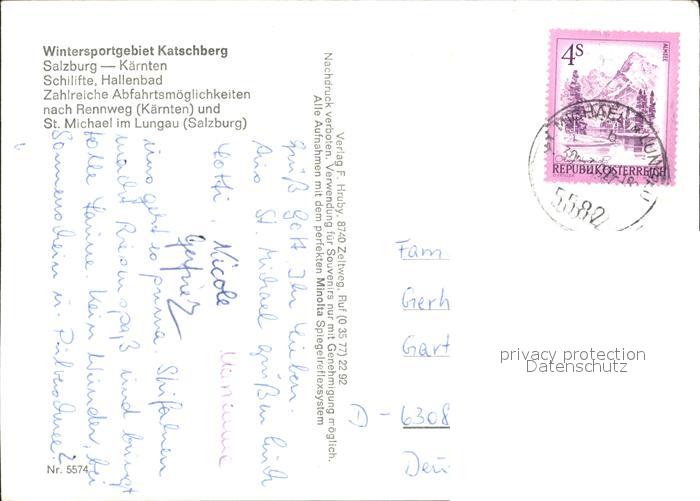 Wintersportgebiet Katschberg
Salzburg — Kärnten
Schilifte, Hallenbad
Zahlreiche Abfahrtsmöglichkeiten
nach Rennweg (Kärnten) und
St. Michael im Lungau (Salzburg)
Grüß Gott, Ihr Lieben.
Aus St. Michael grüßen Euch
Nicole
Gerfried
Marianne
Uns geht es prima. Skifahren
macht Riesenspaß und bringt
tolle Laune. Kein Wunder, bei
Sonnenschein in Pulverschnee!
Nr. 5574
Verlag F. Hruby, 8740 Zeltweg, Ruf (0 35 77) 22 92
Nachdruck verboten. Verwendung für Souvenirs nur mit Genehmigung möglich.
Alle Aufnahmen mit dem perfekten Minolta Spiegelreflexsystem
4S
ALMSEE
REPUBLIK ÖSTERREICH
5582
Fam
Gerh
Gart
D - 6308
privacy protection
Datenschutz